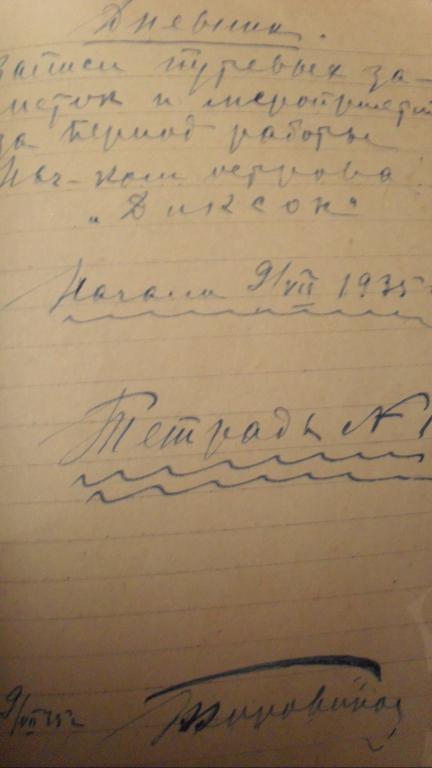 Дневник.
записи путевых за-
меток и мероприятий
за период работы
Нач-ком острова
„Диксон"
Начала 9/VII 1935г
Тетрадь N 1
9/VII 35г